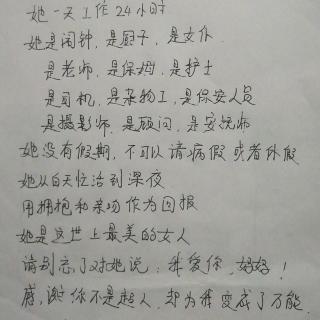 她一天工作24小时
她是闹钟,是厨子,是女仆
是老师,是保姆,是护士
是司机,是杂物工,是保安人员
是摄影师,是顾问,是安抚师
她没有假期,不可以请病假或者休假
她从白天忙活到深夜
用拥抱和亲吻作为回报
她是这世上最美的女人
请别忘了对她说:我爱你,妈妈!
感谢你不是超人,却为我变成了万能